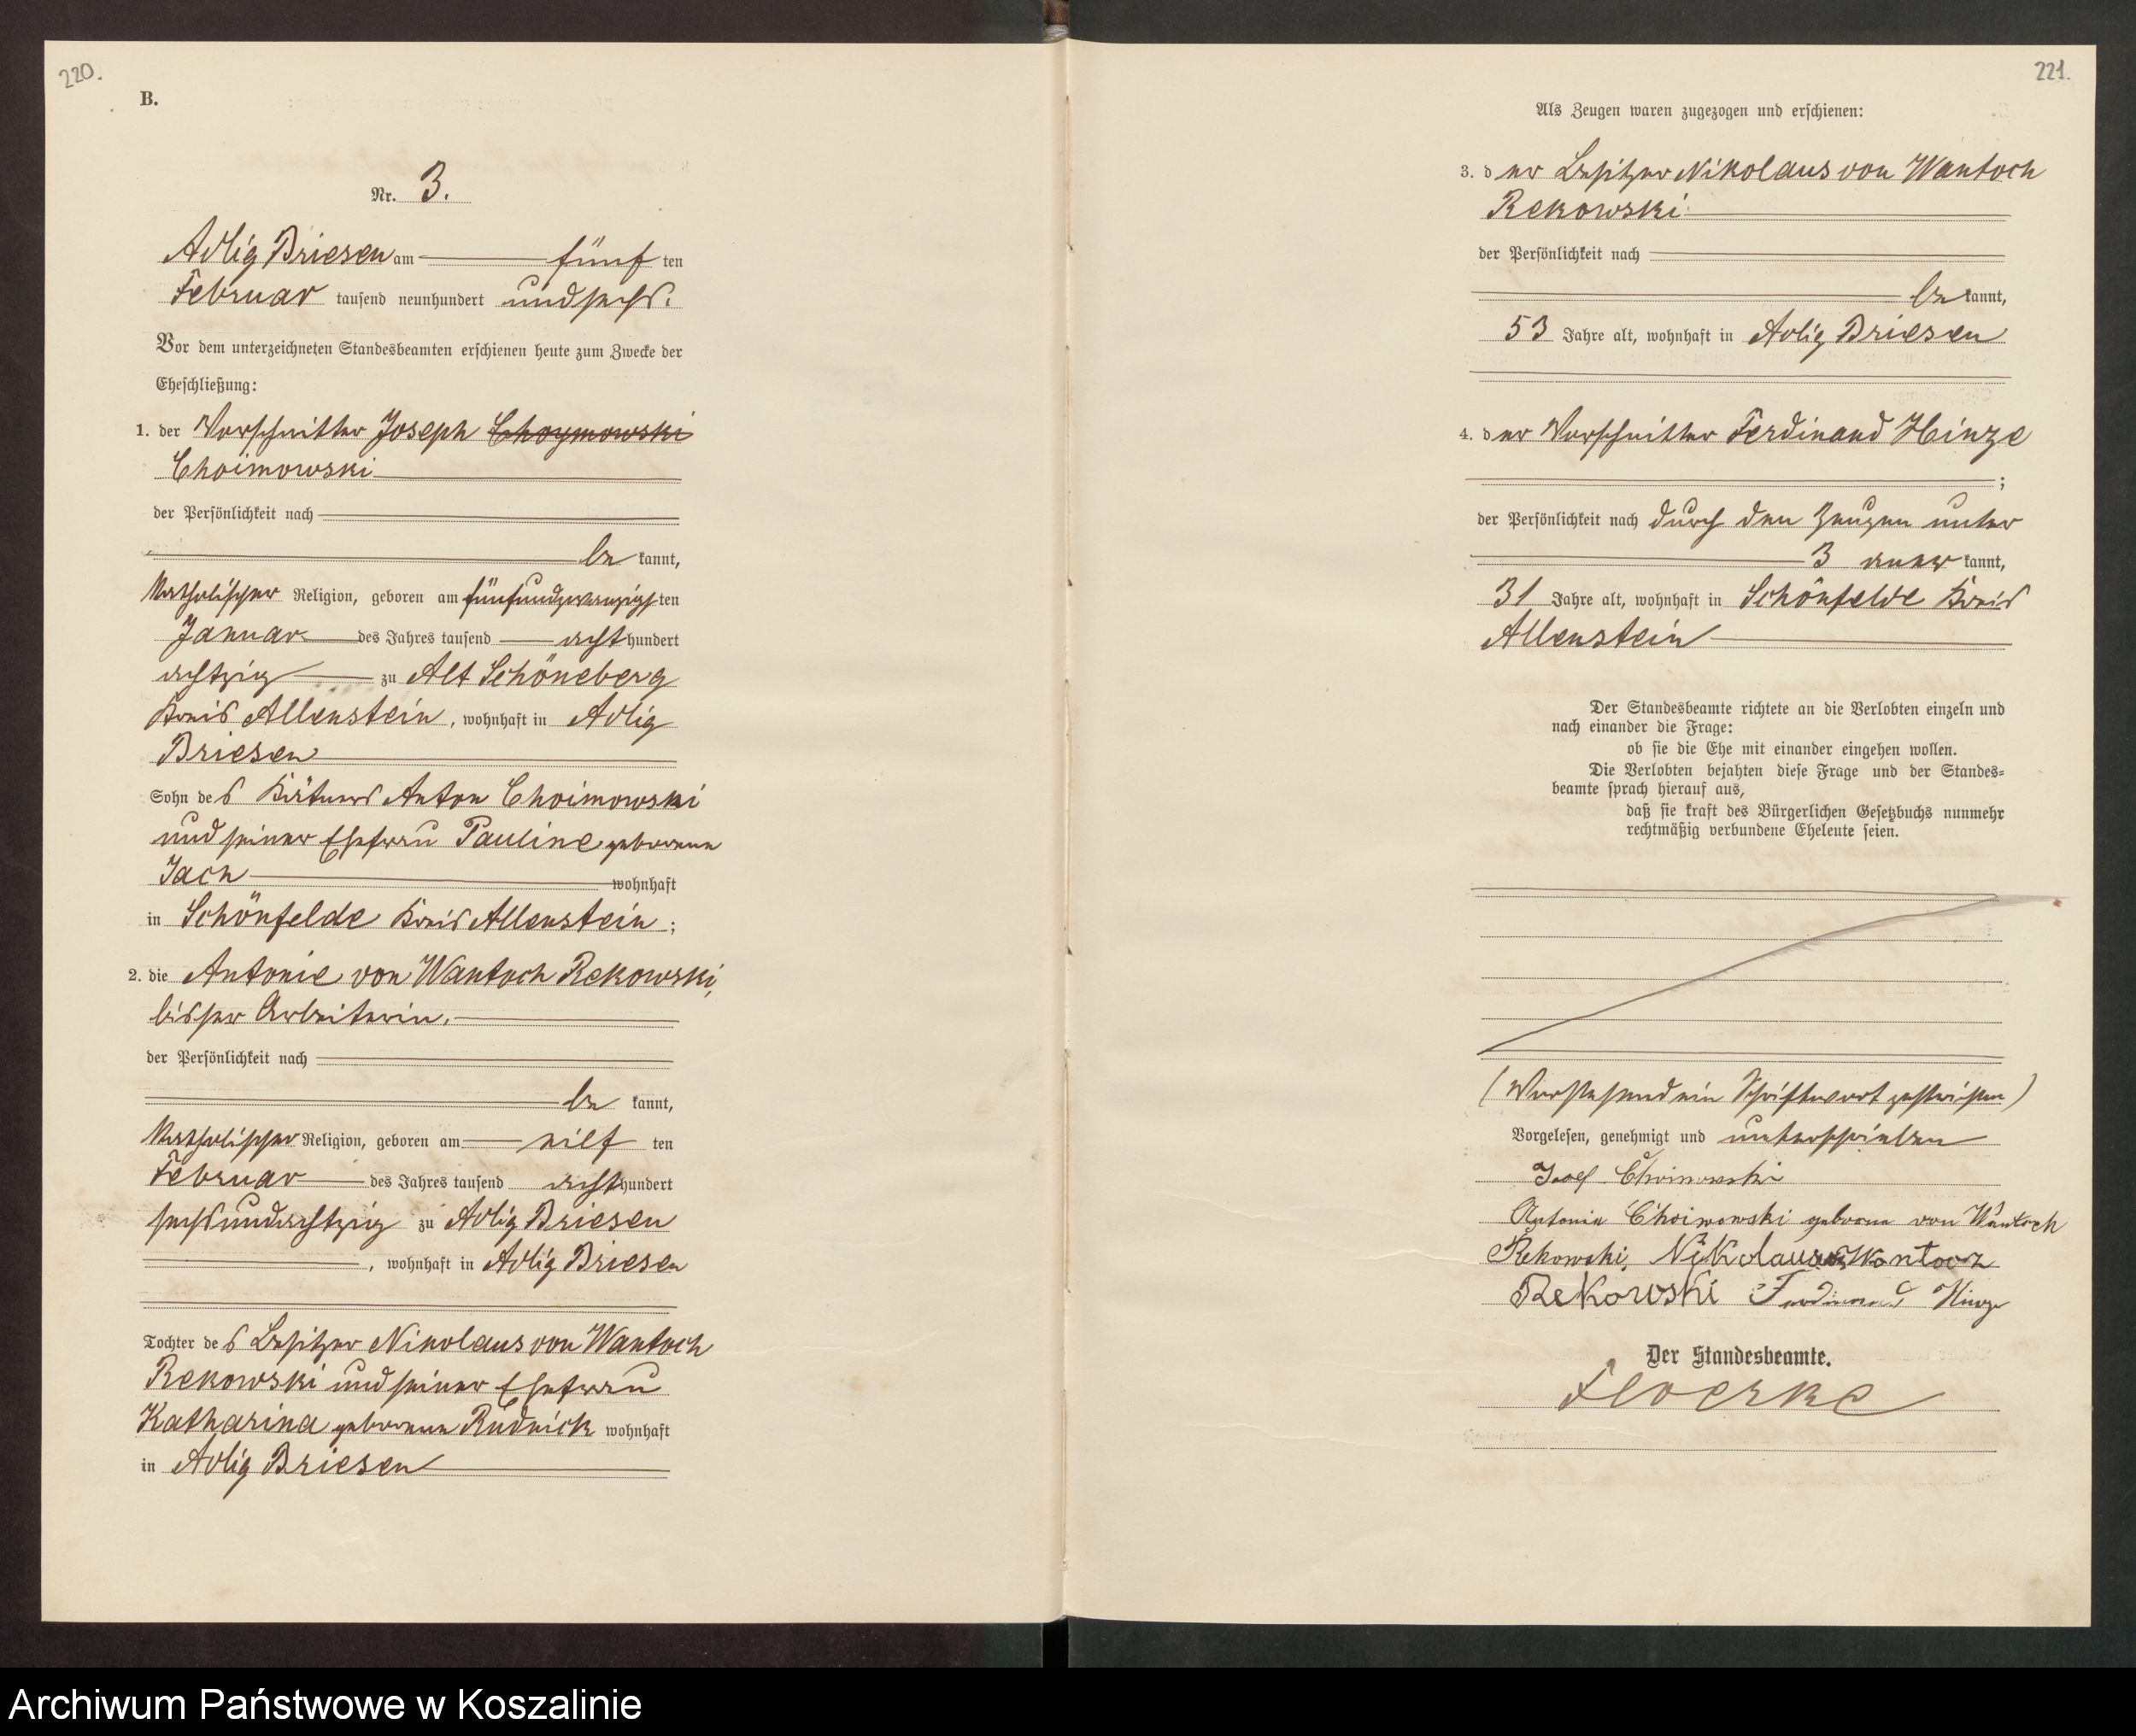 220.
B.
Nr. 3.
Adlig Briesen am fünf ten
Februar tausend neunhundert und sechs.
Vor dem unterzeichneten Standesbeamten erschienen heute zum Zwecke der
Eheschließung:
1. der Vorschnitter Joseph Choymowski
Choimowski
der Persönlichkeit nach
be kannt,
katholischer Religion, geboren am fünfundzwanzigsten
Januar des Jahres tausend acht hundert
achtzig zu Alt Schöneberg
Kreis Allenstein, wohnhaft in Adlig
Briesen
Sohn des Kätners Anton Choimowski
und seiner Ehefrau Pauline geborene
Jach wohnhaft
in Schönfelde Kreis Allenstein;
2. die Antonie von Wantoch Rekowski,
bisher Arbeiterin.
der Persönlichkeit nach
be kannt,
katholischer Religion, geboren am eilf ten
Februar des Jahres tausend acht hundert
sechsundachtzig zu Adlig Briesen
, wohnhaft in Adlig Briesen
Tochter des Besitzer Nikolaus von Wantoch
Rekowski und seiner Ehefrau
Katharina geborene Rudnick wohnhaft
in Adlig Briesen
221.
Als Zeugen waren zugezogen und erschienen:
3. der Besitzer Nikolaus von Wantoch
Rekowski
der Persönlichkeit nach
be kannt,
53 Jahre alt, wohnhaft in Adlig Briesen
4. der Vorschnitter Ferdinand Hinze
;
der Persönlichkeit nach durch den Zeugen unter
3 aner kannt,
31 Jahre alt, wohnhaft in Schönfelde Kreis
Allenstein
Der Standesbeamte richtete an die Verlobten einzeln und
nach einander die Frage:
ob sie die Ehe mit einander eingehen wollen.
Die Verlobten bejahten diese Frage und der Standes-
beamte sprach hierauf aus,
daß sie kraft des Bürgerlichen Gesetzbuchs nunmehr
rechtmäßig verbundene Eheleute seien.
(Vorstehend ein Schriftwort gestrichen)
Vorgelesen, genehmigt und unterschrieben
Josef Choimowski
Antonie Choimowski geborene von Wantoch
Rekowski. Nikolaus von Wantoch
Rekowski Ferdinand Hinze
Der Standesbeamte.
Floerke
Archiwum Państwowe w Koszalinie